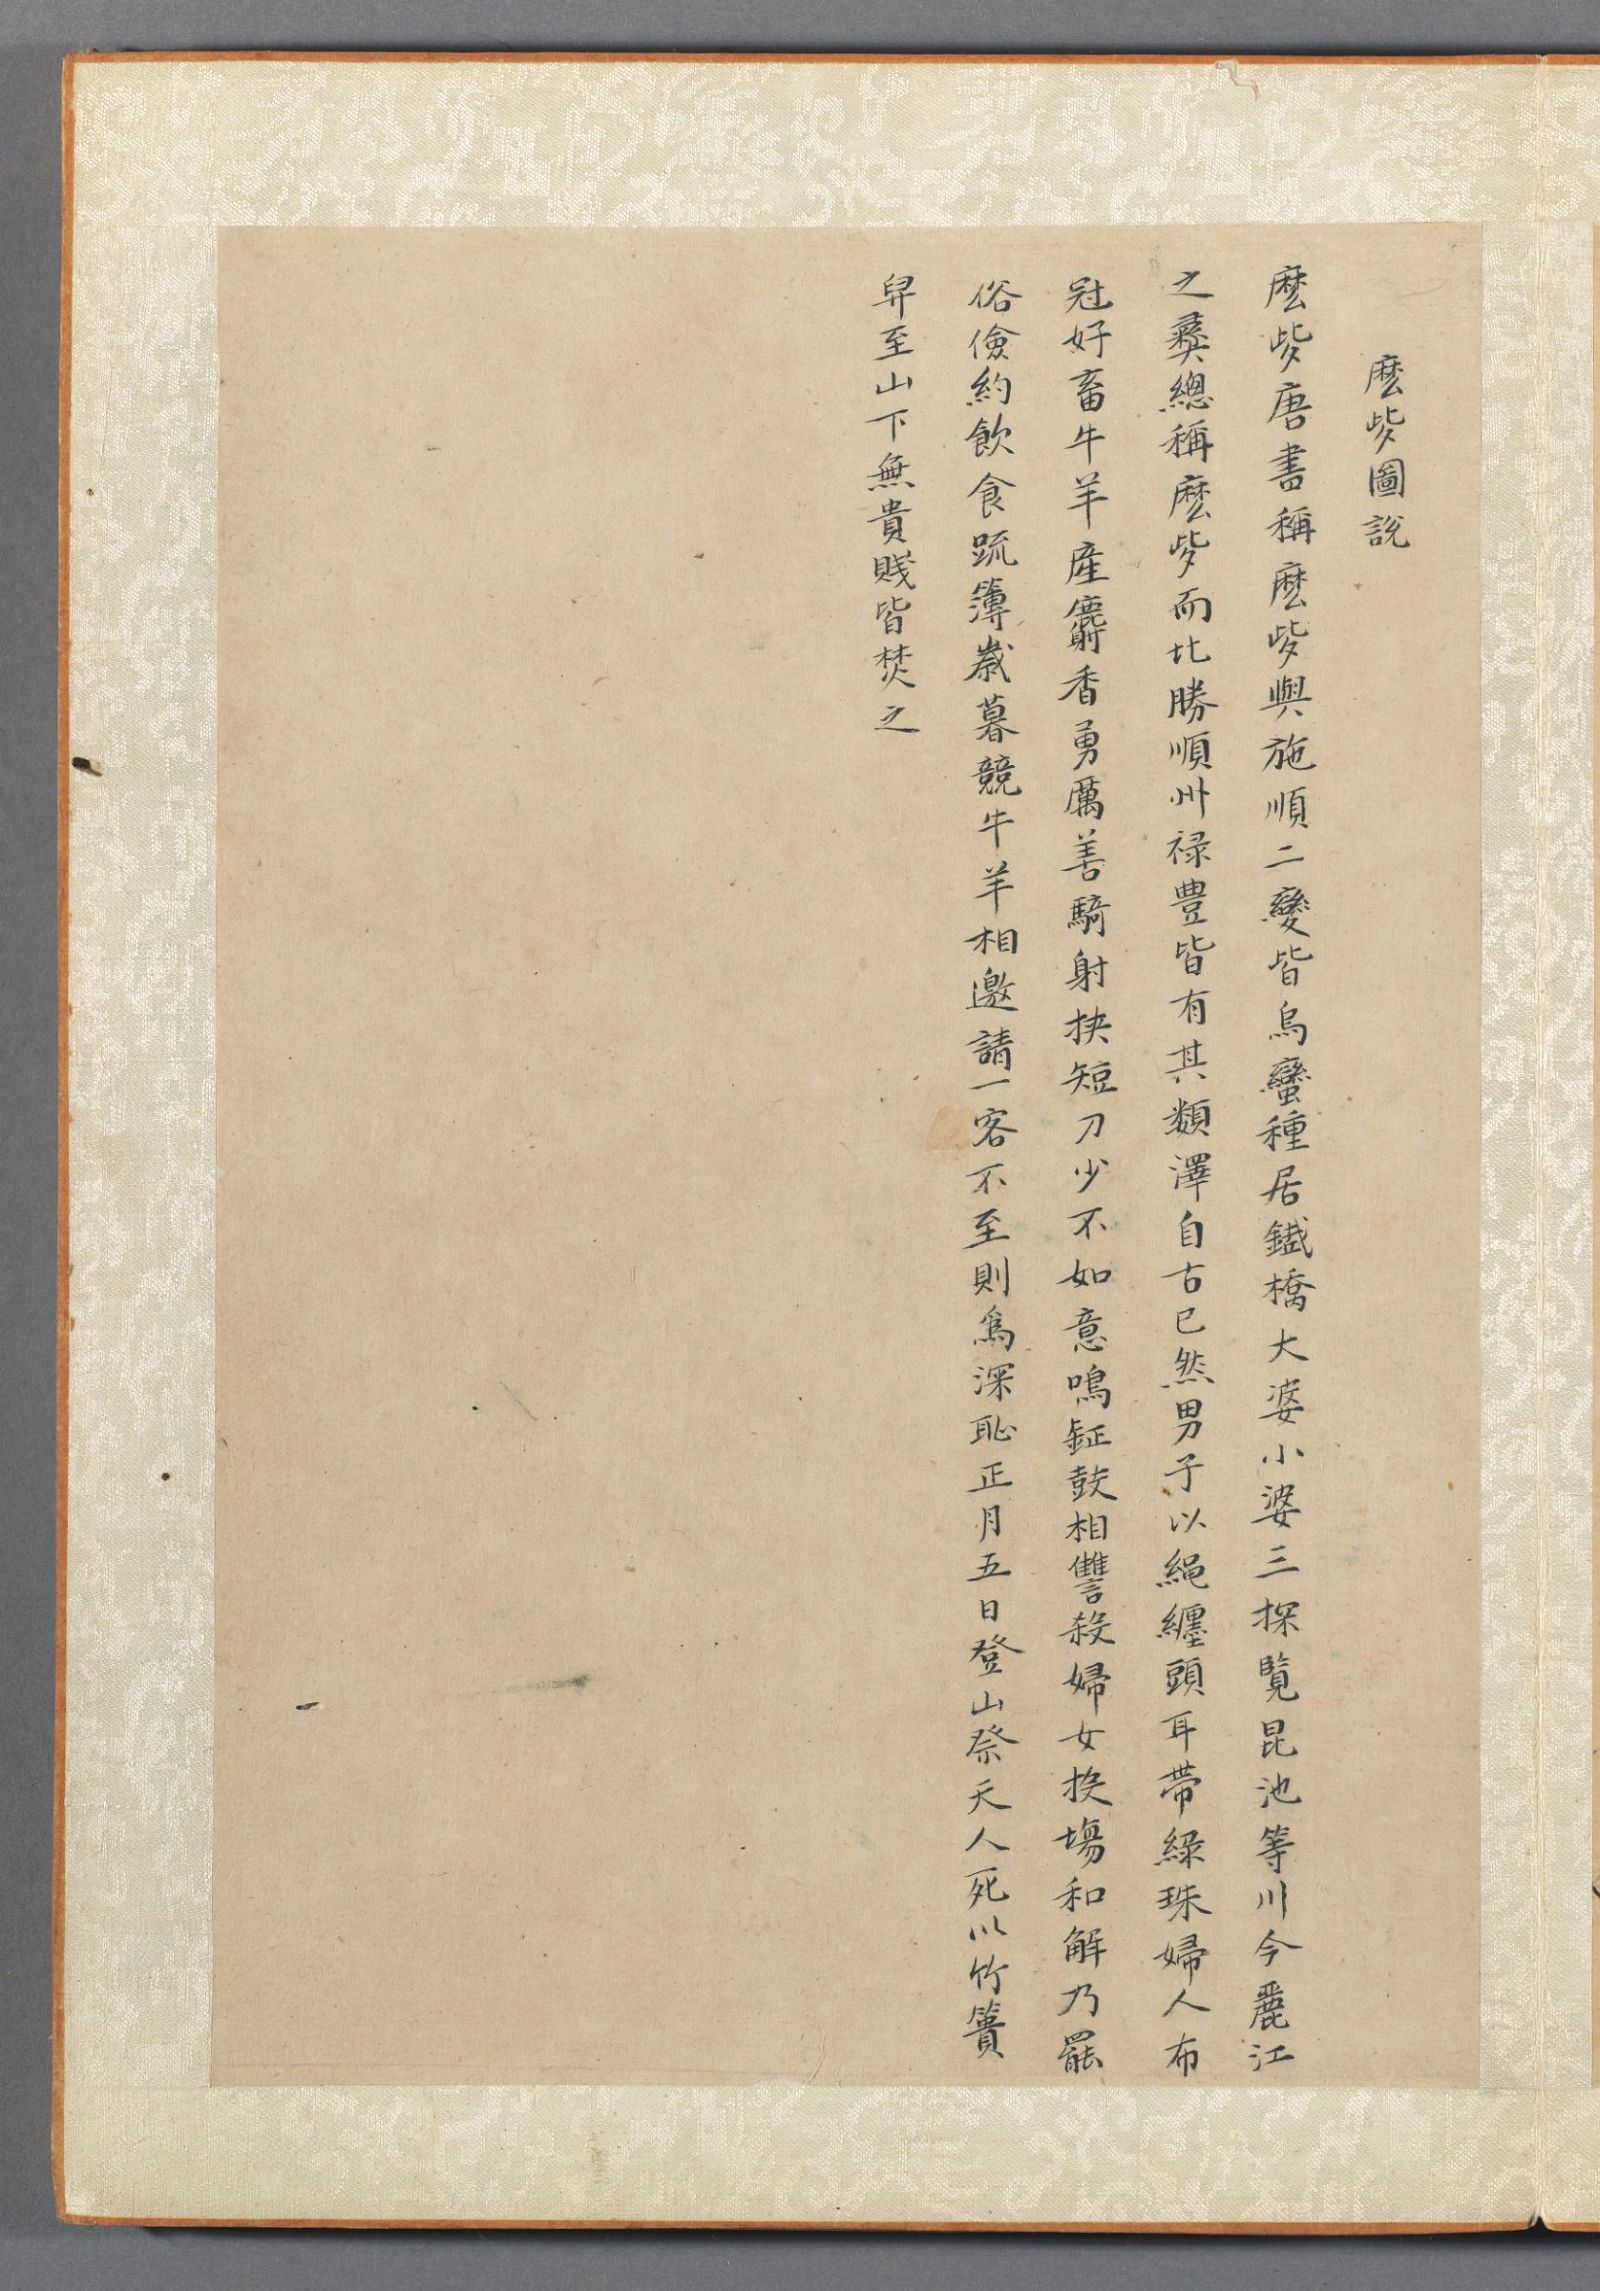 麽㱔圖說
麽㱔唐書稱麽㱔與施順二變皆烏蠻種居鐡橋大婆小婆三探覧昆池等川今麗江
之彞總稱麽㱔而北勝順州禄豊皆有其類澤自古已然男子以繩纏頭耳帶緑珠婦人布
冠好畜牛羊産麝香勇厲善騎射挾短刀少不如意鳴鉦鼓相讐殺婦女投塲和解乃罷
俗儉約飲食䟽簿嵗暮競牛羊相邀請一客不至則爲深恥正月五日登山祭天人死以竹簣
舁至山下無貴賤皆焚之